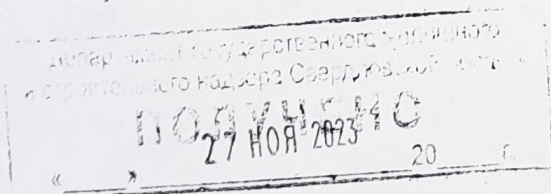 Департамент государственного жилищного
и строительного надзора Свердловской области
ПОЛУЧЕНО
27 НОЯ 2023
«____»____________20____ г.